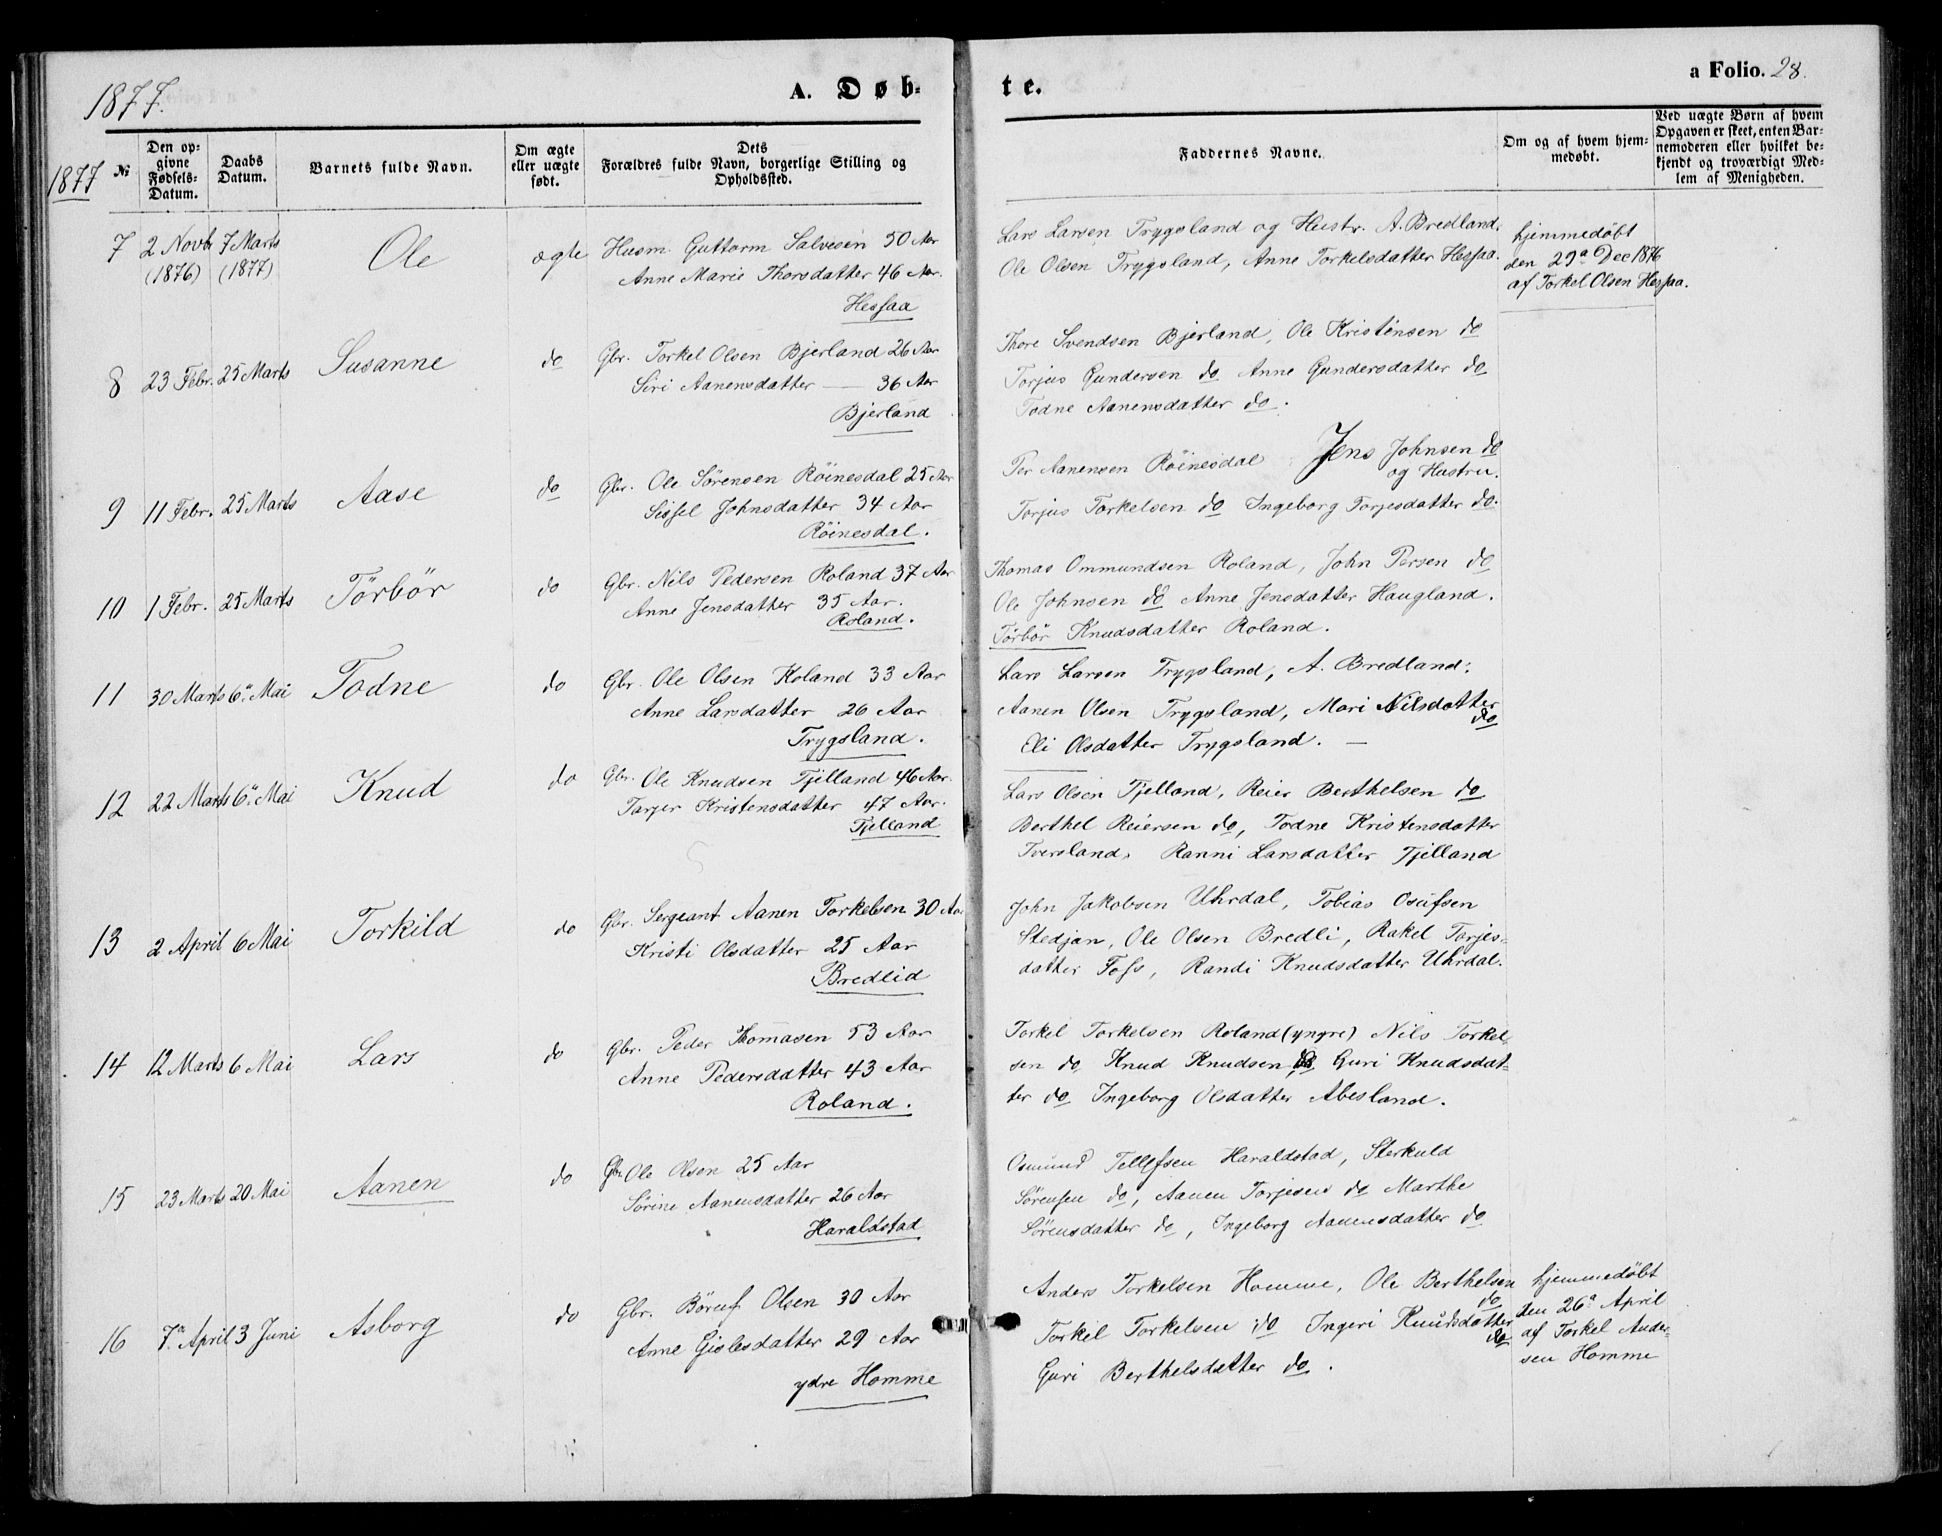 1877.
A. Døb-
te.
a Folio. 28.
1877
№
Den op-
givne
Fødsels-
Datum.
Daabs
Datum.
Barnets fulde Navn.
Om ægte
eller uægte
født.
Dets
Forældres fulde Navn, borgerlige Stilling og
Opholdssted.
Faddernes Navne.
Om og af hvem hjem-
medøbt.
Ved uægte Børn af hvem
Opgaven er skeet, enten Bar-
nemoderen eller hvilket be-
kjendt og troværdigt Med-
lem af Menigheden.
7 2 Novbr (1876) 7 Marts (1877) Ole ægte
Husm. Guttorm Salvesen 50 Aar
Anne Marie Thorsdatter 46 Aar.
Hessaa
Lars Larsen Trygsland og Hustr. A. Bredland.
Ole Olsen Trygsland, Anne Torkelsdatter Hessaa.
hjemmedøbt
den 29a Dec 1876
af Torkel Olsen Hessaa.
8 23 Febr. 25 Marts Susanne do
Gbr. Torkel Olsen Bjerland 26 Aar
Siri Aanensdatter — 36 Aar
Bjerland
Thore Svendsen Bjerland, Ole Kristensen do
Torjus Gundersen do Anne Gundersdatter do
Todne Aanensdatter do.
9 11 Febr. 25 Marts Aase do
Gbr. Ole Sörensen Röinesdal 25 Aar
Sissel Johnsdatter 34 Aar
Röinesdal.
Per Aanensen Röinesdal Jens Johnsen do
og Hustru.
Torjus Torkelsen do Ingeborg Torjesdatter do.
10 1 Febr. 25 Marts Törbör do
Gbr. Nils Pedersen Roland 37 Aar
Anne Jensdatter 35 Aar.
Roland.
Thomas Ommundsen Roland, John Persen do
Ole Johnsen do Anne Jensdatter Haugland.
Törbör Knudsdatter Roland.
11 30 Marts 6. Mai Todne do
Gbr. Ole Olsen Roland 33 Aar
Anne Larsdatter 26 Aar
Trygsland.
Lars Larsen Trygsland, A. Bredland.
Aanen Olsen Trygsland, Mari Nilsdatter
do
Eli Olsdatter Trygsland. —
12 22 Marts 6. Mai Knud do
Gbr. Ole Knudsen Fjelland 46 Aar.
Tarjer Kristensdatter 47 Aar.
Fjelland
Lars Olsen Fjelland, Reier Berthelsen do
Berthel Reiersen do, Todne Kristensdatter
Tversland, Ranni Larsdatter Fjelland
13 2 April 6 Mai Torkild do
Gbr. Sergeant Aanen Torkelsen 30 Aar
Kristi Olsdatter 25 Aar
Bredlid
John Jakobsen Uhrdal, Tobias Osufsen
Stedjan, Ole Olsen Bredli, Rakel Torjes-
datter Foss, Randi Knudsdatter Uhrdal.
14 12 Marts 6 Mai Lars do
Gbr. Peder Thomasen 53 Aar
Anne Pedersdatter 43 Aar
Roland.
Torkel Torkelsen Roland (yngre) Nils Torkel-
sen do Knud Knudsen do Guri Knudsdat-
ter do Ingeborg Olsdatter Abesland.
15 23 Marts 20 Mai Aanen do
Gbr Ole Olsen 25 Aar
Sörine Aanensdatter 26 Aar
Haraldstad
Osmund Tellefsen Haraldstad, Sterkuld
Sörensen do, Aanen Torjesen do Marthe
Sörensdatter do, Ingeborg Aanensdatter do
16 7a April 3 Juni Asborg do
Gbr. Böruf Olsen 30 Aar
Anne Gislesdatter 29 Aar
ydre Homme
Anders Torkelsen Homme, Ole Berthelsen
do
Torkel Torkelsen do Ingeri Knudsdatter
do
Guri Berthelsdatter do.
hjemmedöbt
den 26a April
af Torkel Ander-
sen Homme